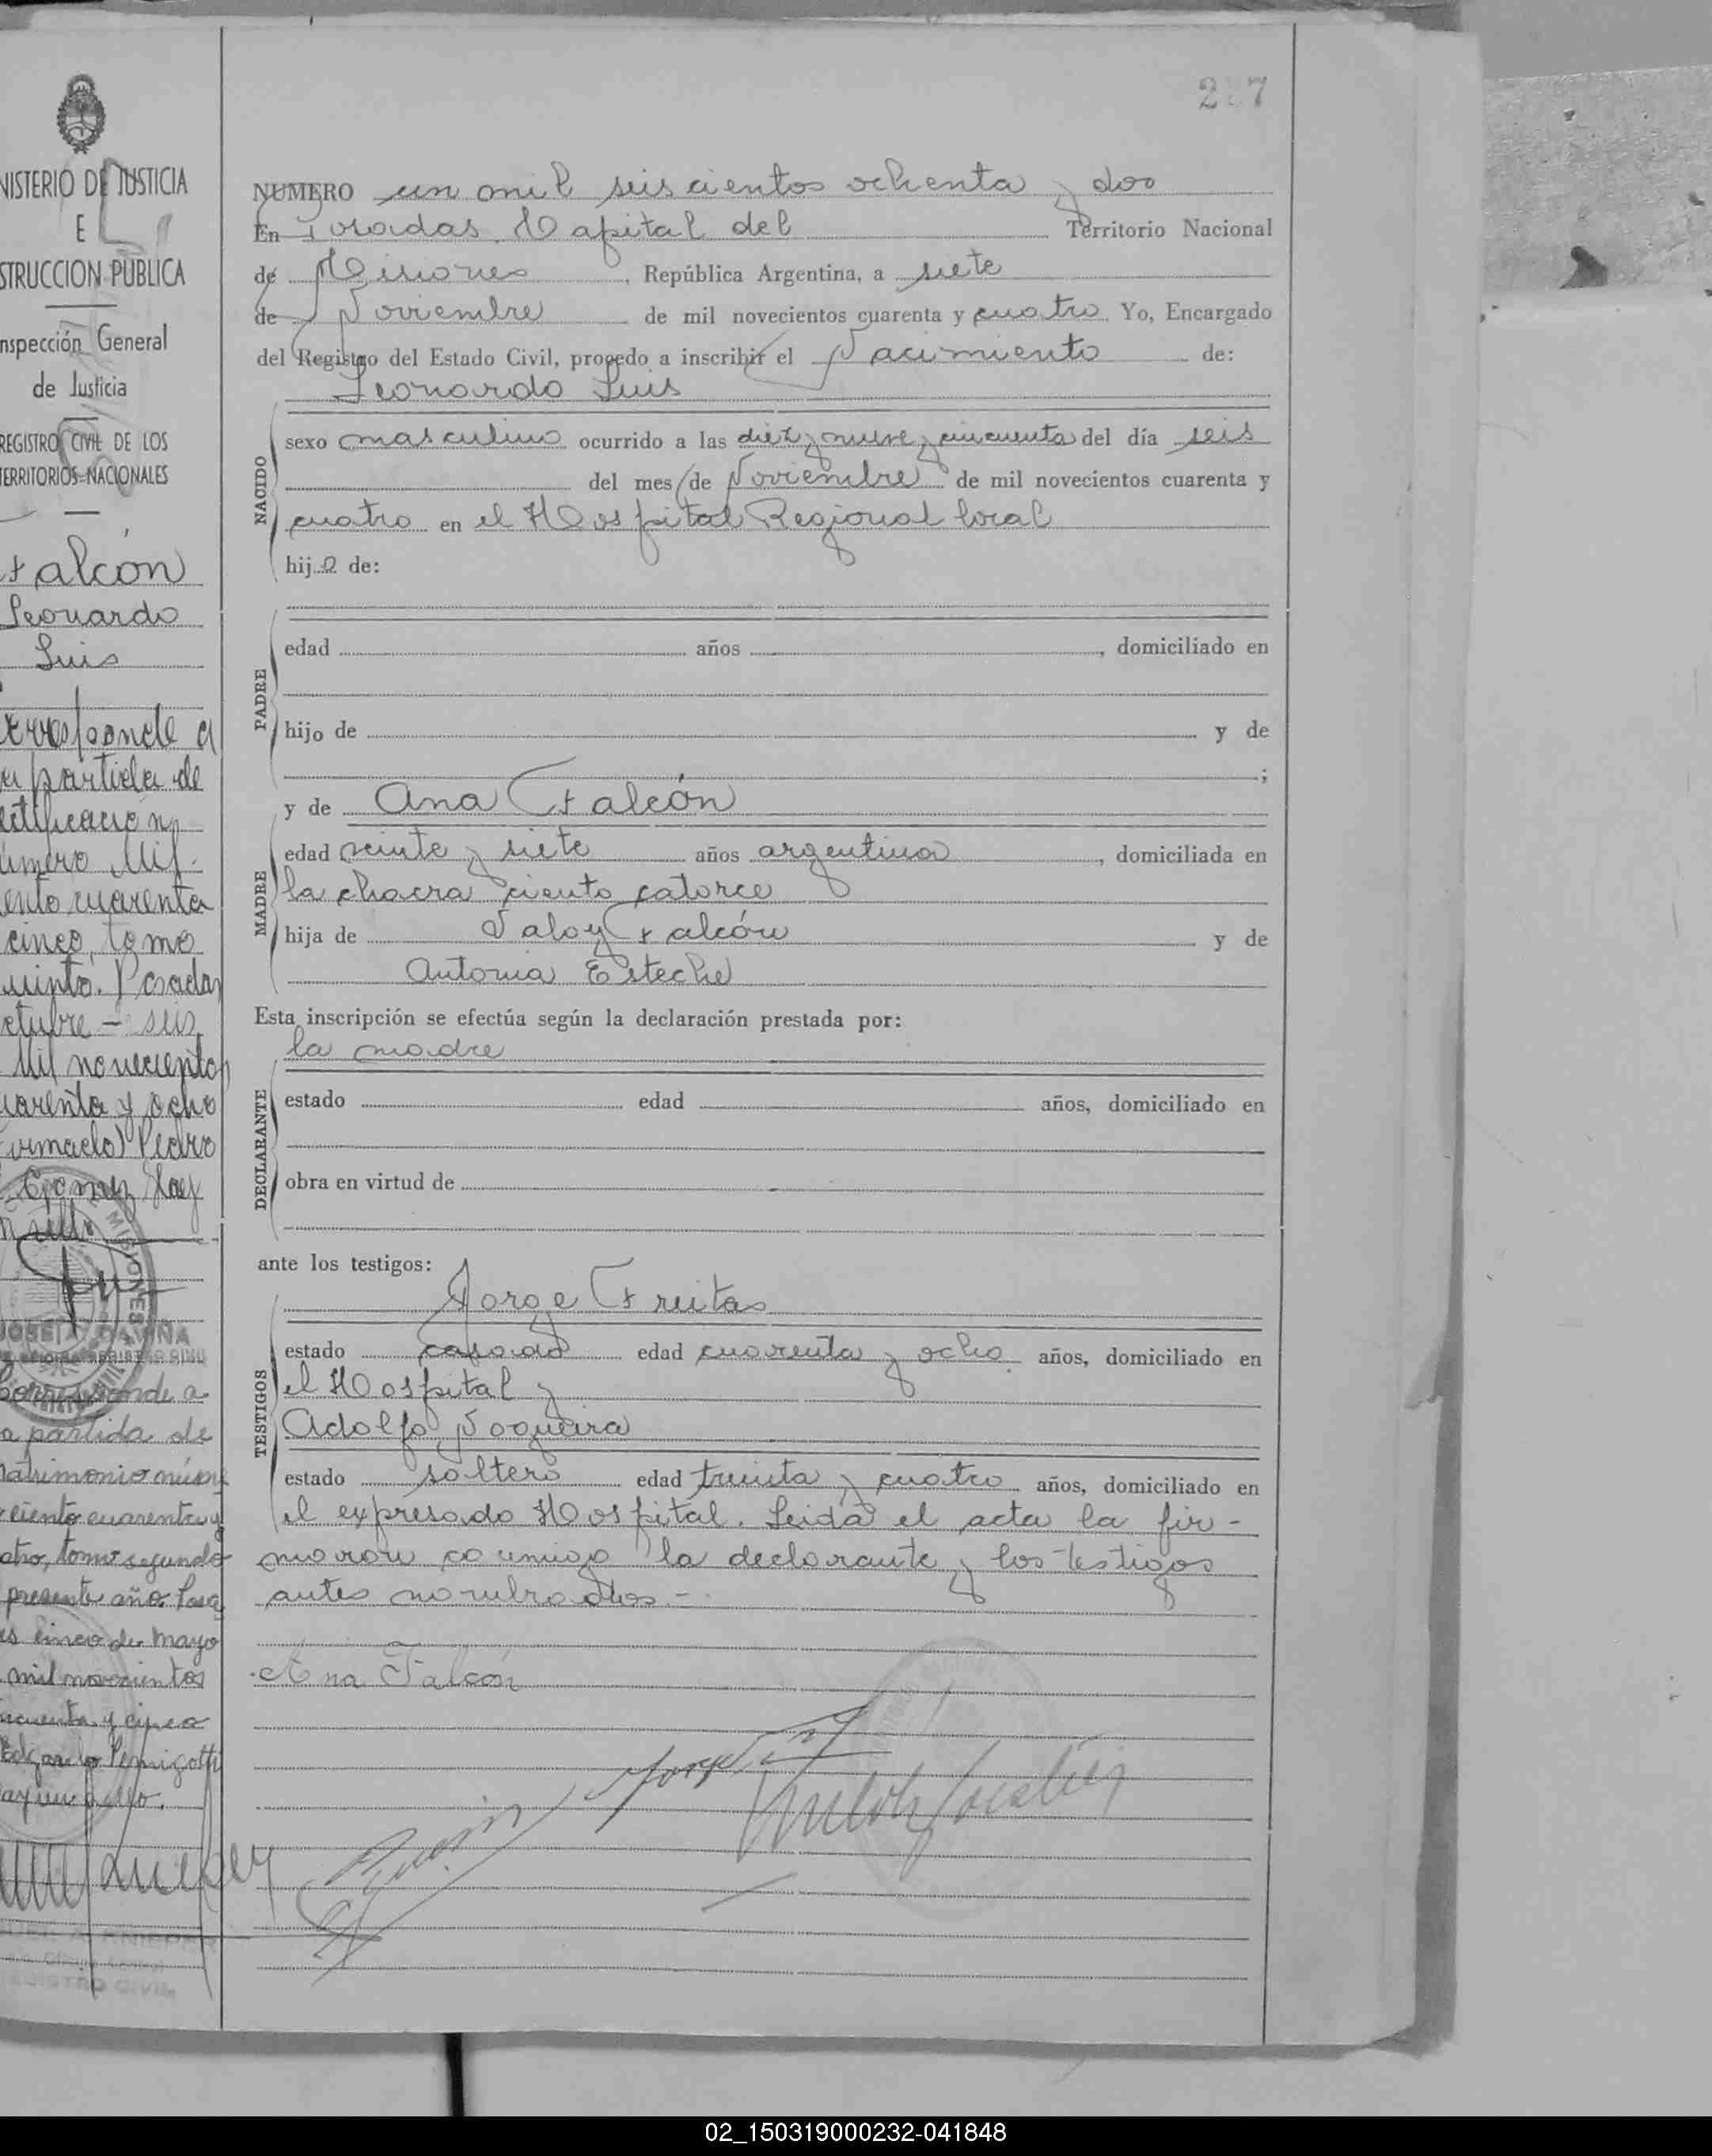 227
NISTERIO DE JUSTICIA
E
STRUCCION PUBLICA
nspección General
de Justicia
REGISTRO CIVIL DE LOS
TERRITORIOS NACIONALES
Falcón
Leonardo
Luis
rresponde a
a partida de
ectificación
úmero Mil
ento cuarenta
cinco, tomo
uinto. Posadas
ctubre - seis
Mil novecientos
uarenta y ocho
irmado) Pedro
Gomez Hay
un sello
MISIONES
JOSE A. DAVIÑA
Corresponde a
a partida de
matrimonio núme
ciento cuarenta y
atro, tomo segundo
presente año. Posa
as cinco de Mayo
mil novecientos
ncuenta y cinco
Edgardo
ay un sello.
REGISTRO CIVIL
NUMERO un mil seiscientos ochenta y dos
En Posadas Capital del Territorio Nacional
de Misiones, República Argentina, a siete
de Noviembre de mil novecientos cuarenta y cuatro Yo, Encargado
del Registro del Estado Civil, procedo a inscribir el Nacimiento de:
Leonardo Luis
NACIDO
sexo masculino ocurrido a las diez y nueve y cincuenta del día seis
del mes de Noviembre de mil novecientos cuarenta y
cuatro en el Hospital Regional local
hijo de:
PADRE
edad años , domiciliado en
hijo de y de
;
MADRE
y de Ana Falcón
edad veinte y siete años argentina, domiciliada en
la chacra ciento catorce
hija de Valoy Falcón y de
Antonia Esteche
Esta inscripción se efectúa según la declaración prestada por:
la madre
DECLARANTE
estado edad años, domiciliado en
obra en virtud de
ante los testigos:
Jorge Freitas
TESTIGOS
estado casado edad cuarenta y ocho años, domiciliado en
el Hospital y
Adolfo Nogueira
estado soltero edad treinta y cuatro años, domiciliado en
el expresado Hospital. Leída el acta la fir-
maron conmigo la declarante y los testigos
antes nombrados.-
Ana Falcón
02_150319000232-041848